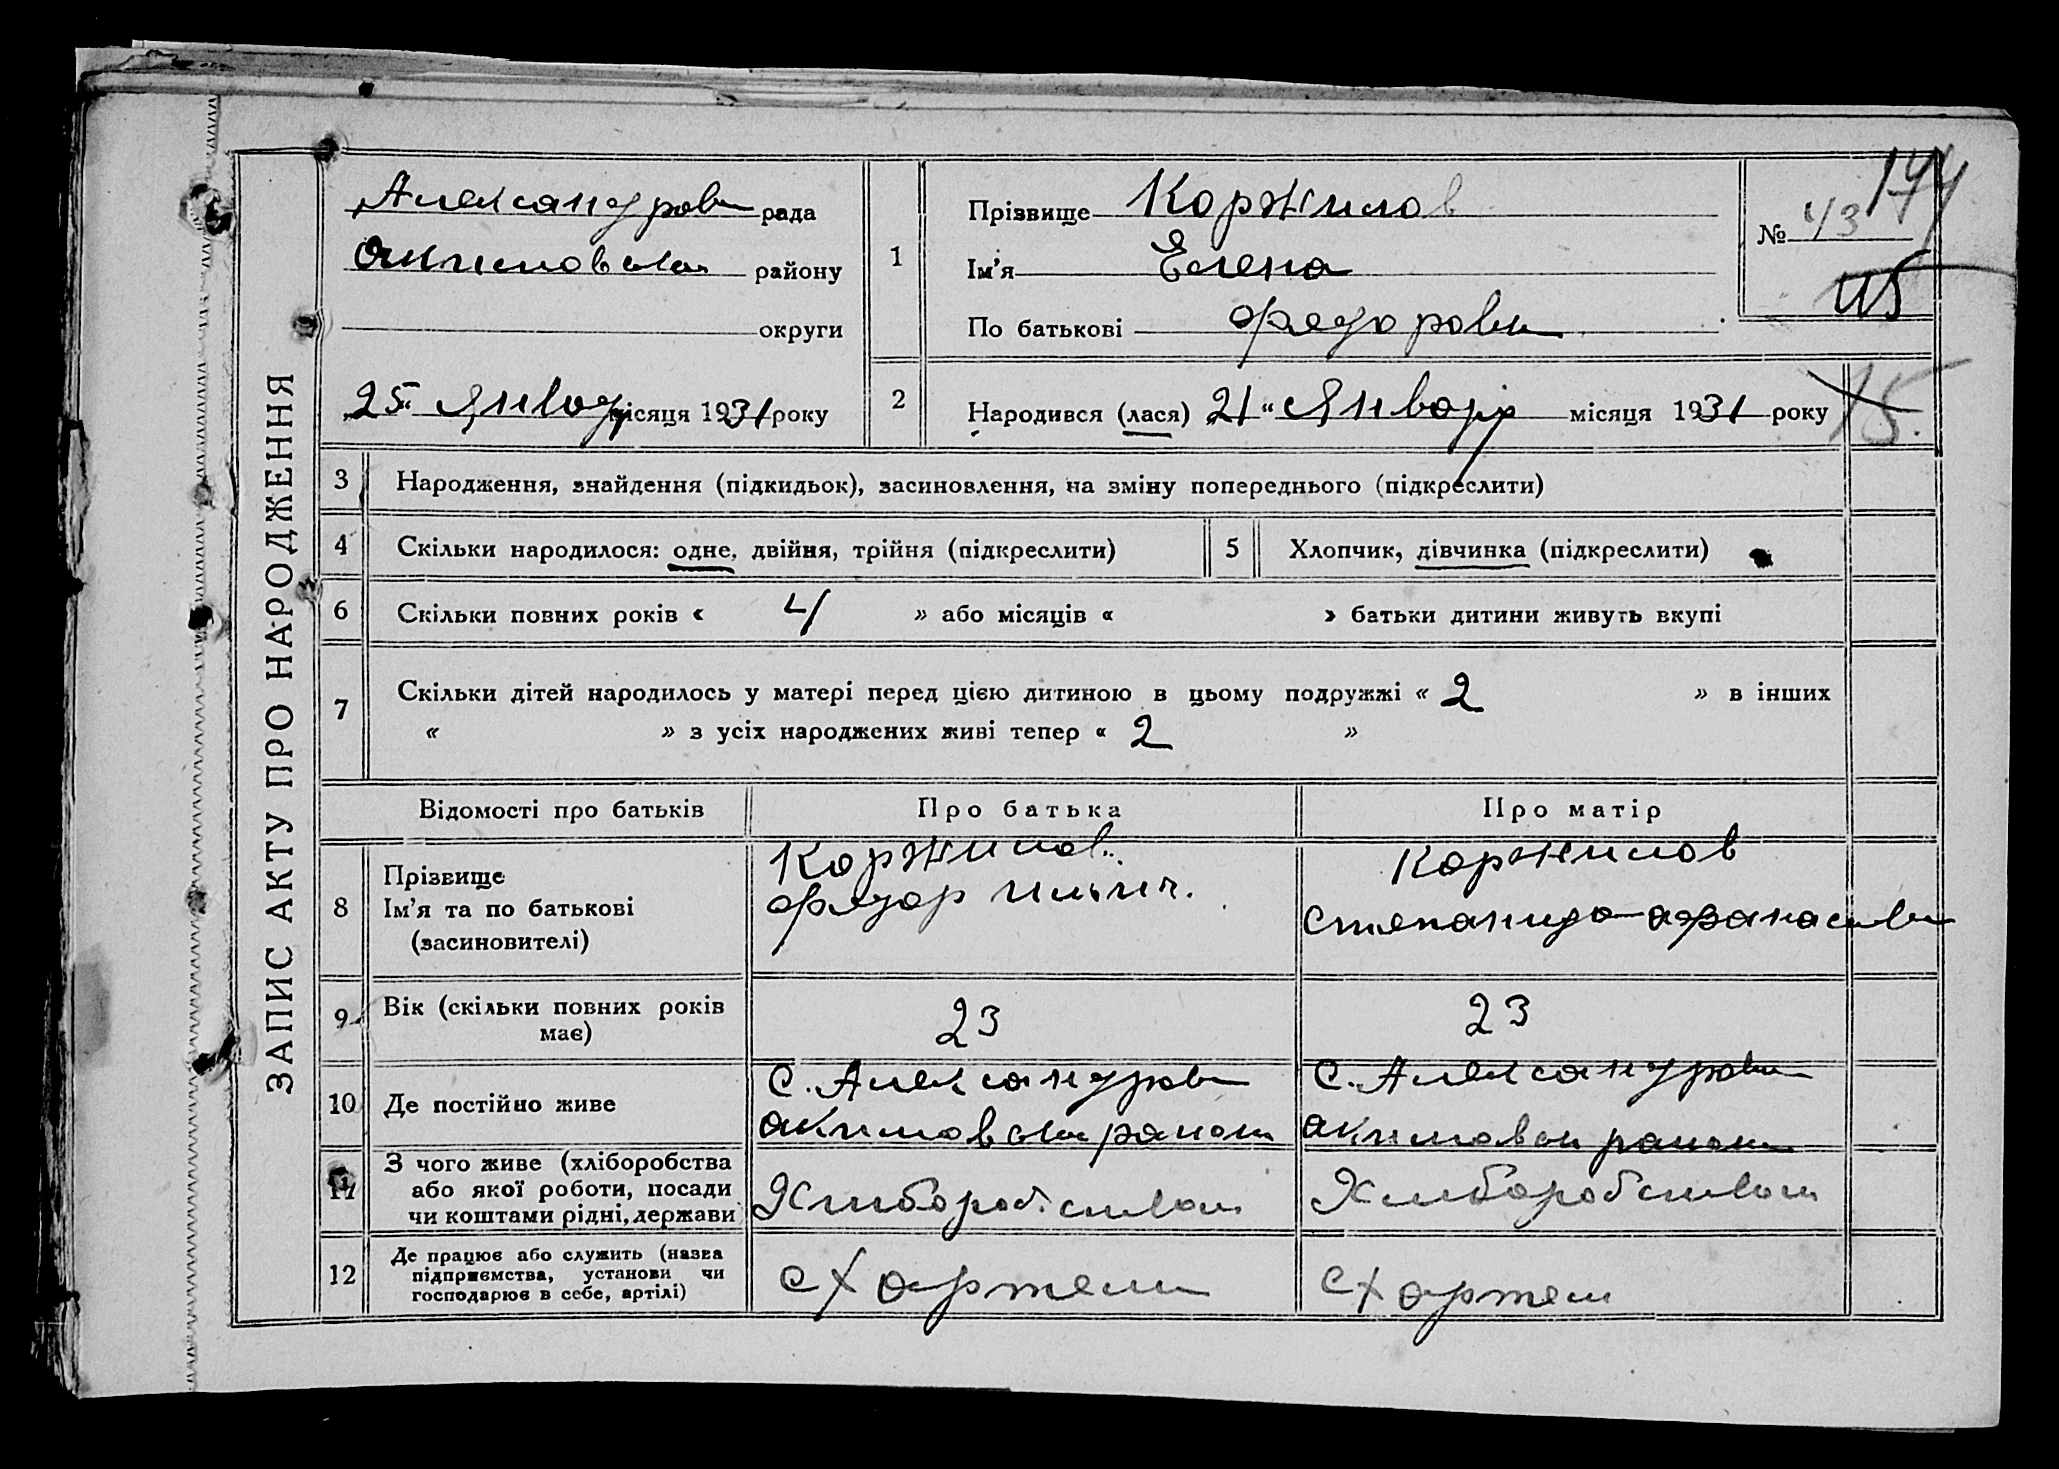 ЗАПИС АКТУ ПРО НАРОДЖЕННЯ
Александров рада
Акимовская району
округи
25 Янвор місяця 1931 року
1
Прізвище Коржилов
Ім'я Елена
По батькові Федоровн
№ 43
144
115
15.
2
Народився (лася) 21 " Январ місяця 1931 року
3 Народження, знайдення (підкидьок), засиновлення, на зміну попереднього (підкреслити)
4 Скільки народилося: одне, двійня, трійня (підкреслити) 5 Хлопчик, дівчинка (підкреслити)
6 Скільки повних років « 4 » або місяців « » батьки дитини живуть вкупі
7 Скільки дітей народилось у матері перед цією дитиною в цьому подружжі « 2 » в інших
« » з усіх народжених живі тепер « 2 »
Відомості про батьків Про батька Про матір
8 Прізвище
Ім'я та по батькові
(засиновителі)
Коржилов.
Федор Ильич.
Коржилов
Степанида Афанасив
9 Вік (скільки повних років
має)
23
23
10 Де постійно живе
с. Александров
Акимовск район
с. Александров
Акимовск район
11 З чого живе (хліборобства
або якої роботи, посади
чи коштами рідні, держави
Хлиборобством
Хлиборобством
12 Де працює або служить (назва
підприємства, установи чи
господарює в себе, артілі)
с/х артели
с/х артели